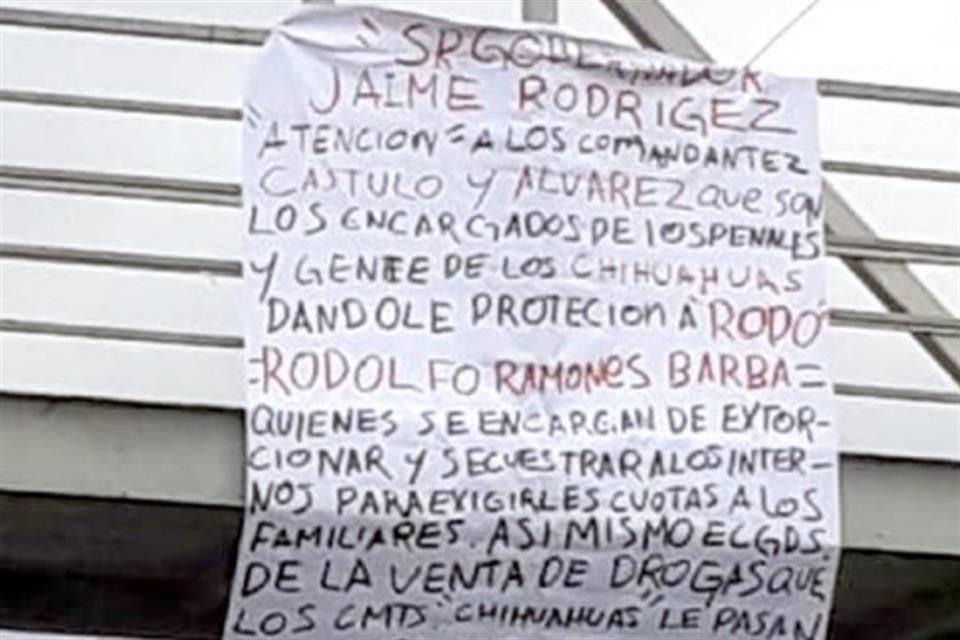 "SR GOBERNADOR
JAIME RODRIGEZ
"ATENCION = A LOS COMANDANTEZ
CASTULO Y ALVAREZ QUE SON
LOS ENCARGADOS DE lOS PENALES
Y GENTE DE LOS CHIHUAHUAS
DANDOLE PROTECION A RODO
=RODOLFO RAMONES BARBA=
QUIENES SE ENCARGAN DE EXTOR-
CIONAR Y SECUESTRAR A LOS INTER-
NOS PARA EXIGIRLES CUOTAS A LOS
FAMILIARES. ASI MISMO EL CGDS.
DE LA VENTA DE DROGAS QUE
LOS CMTS "CHIHUAHUAS" LE PASAN